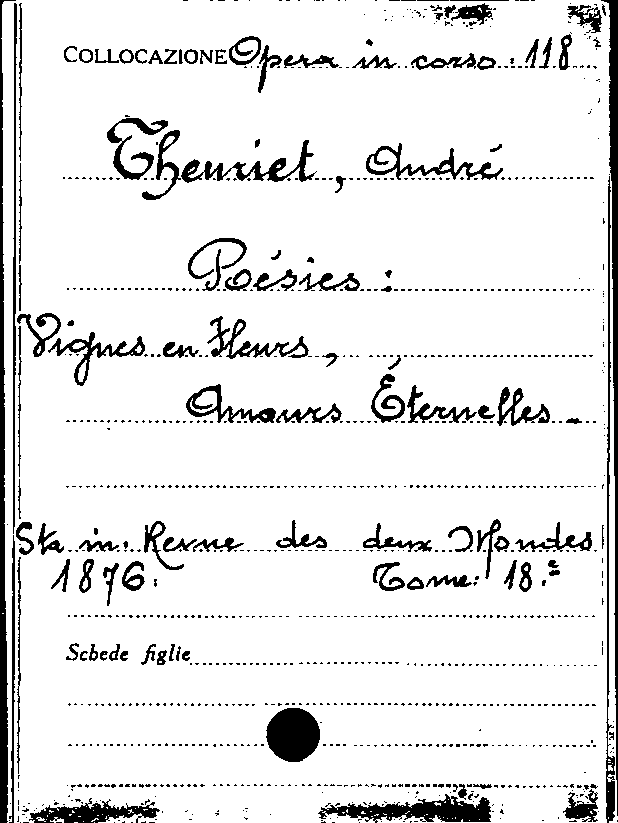 COLLOCAZIONE Opera in corso . 118
Theuriet, André
Poésies :
Vignes en Fleurs,
Amours Éternelles -
Sta in. Revue des deux Mondes
1876. Tome. 18.º
Schede figlie